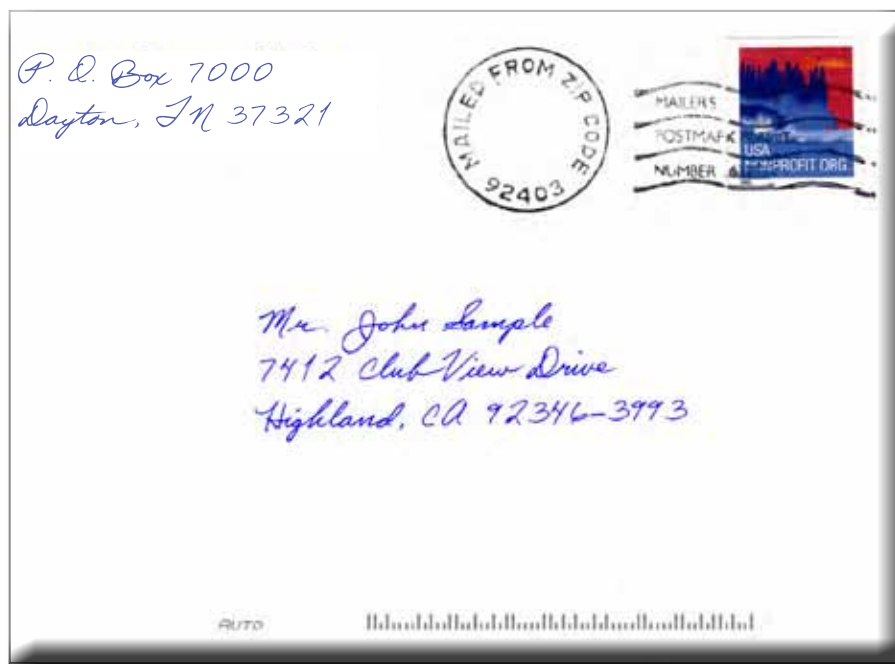 P. O. Box 7000
Dayton, TN 37321
MAILED FROM ZIP CODE
92403
MAILER'S
POSTMARK
NUMBER
USA
NONPROFIT ORG.
Mr. John Sample
7412 Club View Drive
Highland, CA 92346-3993
AUTO